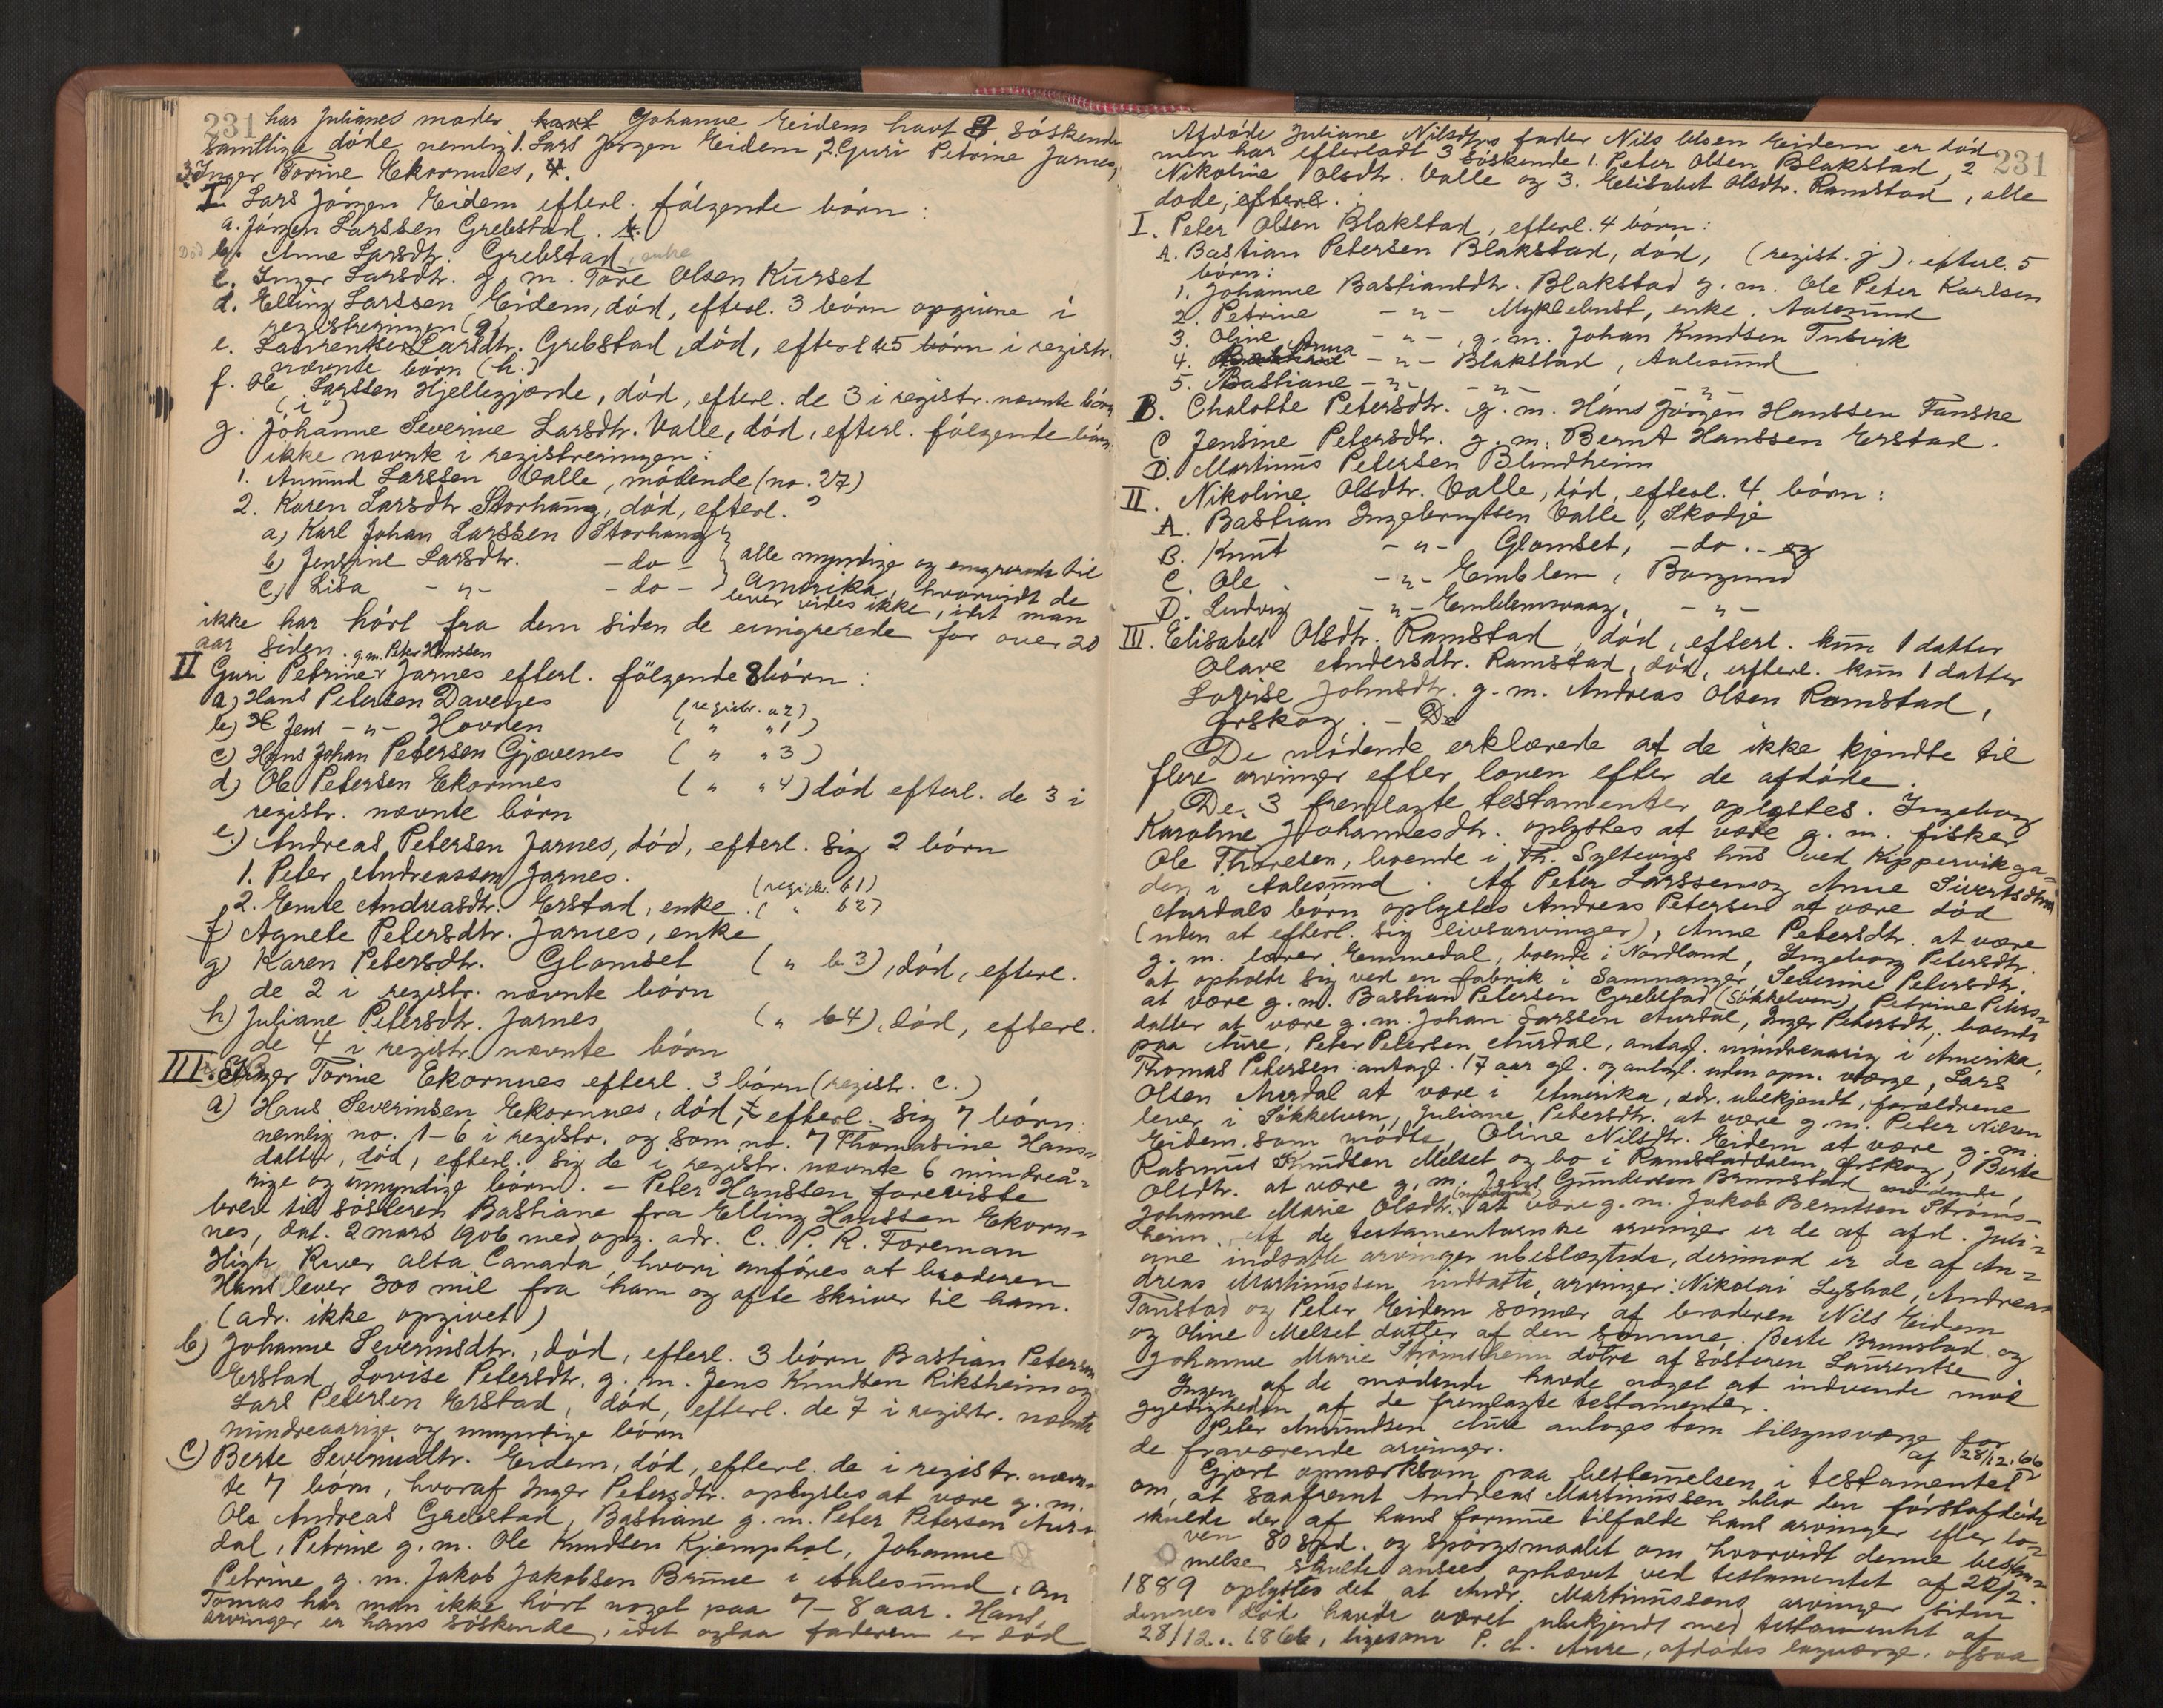 231 har Julianes moder havt Johanne Eidem havt 3 söskende
samtlige döde, nemlig 1. Lars Jörgen Eidem, 2. Guri Petrine Jarnes,
3. Inger Torine Ekornnes, 4.
I. Lars Jörgen Eidem efterl. fölgende börn:
a. Jörgen Larssen Grebstad.
Död b. Anne Larsdtr. Grebstad, enke
c. Inger Larsdtr. g. m. Tore Olsen Kurset
d. Elling Larssen Eidem, död, efterl. 3 börn opgivne i
registreringen (g.
e. Laurentse Larsdtr. Grebstad, död, efterl. 5 börn i registr.
nævnte börn (h.)
f. Ole Larssen Hjellegjærde, död, efterl. de 3 i registr. nævnte börn
(i)
g. Johanne Severine Larsdtr. Valle, död, efterl. fölgende börn,
ikke nævnte i registreringen:
1. Amund Larssen Valle, mödende (no. 27)
2. Karen Larsdtr Storhaug, död, efterl. ?
a) Karl Johan Larssen Storhaug
b) Jensine Larsdtr. - do - alle myndige og emigrerede til
c) Lisa - " - - do - Amerika, hvorvidt de
lever vides ikke, idet man
ikke har hört fra dem siden de emigrerede for over 20
aar siden. g. m. Peter Hanssen
II Guri Petrine Jarnes efterl. fölgende 8 börn:
a) Hans Petersen Davenes (registr. a2)
b) Jens - " - Hovden ( " " 1)
c) Hans Johan Petersen Gjævenes ( " " 3)
d) Ole Petersen Ekornnes ( " " 4) död efterl. de 3 i
registr. nævnte börn
e.) Andreas Petersen Jarnes, död, efterl. sig 2 börn
1. Peter Andreassen Jarnes. (registr. b1)
2. Emte Andreasdtr. Erstad, enke. ( " b2)
f) Agnete Petersdtr. Jarnes, enke
g) Karen Petersdtr. Glomset ( " b3), död, efterl.
de 2 i registr. nævnte börn
h) Juliane Petersdtr. Jarnes ( " b4), död, efterl.
de 4 i registr. nævnte börn
III. Inger Torine Ekornnes efterl. 3 börn (registr. c.)
a) Hans Severinsen Ekornnes, död, efterl. sig 7 börn
nemlig no. 1-6 i registr. og som no. 7 Thomasine Hans-
datter, död, efterl. sig de i registr. nævnte 6 mindreå-
rige og umyndige börn. - Peter Hanssen foreviste
brev til sösteren Bastiane fra Elling Hanssen Ekorn-
nes, dat. 2 mars 1906 med opg. adr. C. P. R. Foreman
High River alta Canada, hvori anföres at broderen
Hans lever 300 mil fra ham og ofte skriver til ham.
(adr. ikke opgivet)
b) Johanne Severinsdtr., död, efterl. 3 börn Bastian Petersen
Erstad, Lovise Petersdtr. g. m. Jens Knudsen Riksheim og
Lars Petersen Erstad, död, efterl. de 7 i registr. nævnte
mindreaarige og umyndige börn
c) Berte Severinsdtr. Eidem, död, efterl. de i registr. nævn-
te 7 börn, hvoraf Inger Petersdtr. oplystes at være g. m.
Ole Andreas Grebstad, Bastiane g. m. Peter Petersen Aur-
dal, Petrine g. m. Ole Knudsen Kjemphol, Johanne
Petrine g. m. Jakob Jakobsen Brune i Aalesund. Om
Tomas har man ikke hört noget paa 7-8 aar. Hans
arvinger er hans söskende, idet ogsaa faderen er död
231
Afdöde Juliane Nilsdtrs fader Nils Olsen Eidem er död
men har efterladt 3 söskende 1. Peter Olsen Blakstad, 2
Nikoline Olsdtr. Valle og 3. Elisabet Olsdtr. Ramstad, alle
döde, efterl.
I. Peter Olsen Blakstad, efterl. 4 börn:
A. Bastian Petersen Blakstad, död, (regist. j). efterl. 5
börn:
1. Johanne Bastiansdtr. Blakstad g. m. Ole Peter Karlsen
2. Petrine - " - Myklebust, enke. Aalesund
3. Oline - " -, g. m. Johan Knudsen Tusvik
4. Anna - " - Blakstad, Aalesund
5. Bastiane - " - - " - - " -
B. Chalotte Petersdtr. g. m. Hans Jörgen Hanssen Fauske
C Jensine Petersdtr. g. m. Bernt Hanssen Erstad.
D. Martinus Petersen Blindheim
II. Nikoline Olsdtr. Valle, död, efterl. 4 börn:
A. Bastian Ingebrigtsen Valle, Skodje
B. Knut - " - Glomset, - do. - og
C. Ole - " - Emblem, Borgund
D. Ludvig - " - Emblemsvaag, - " -
III. Elisabet Olsdtr. Ramstad, död, efterl. kun 1 datter
Olave Andersdtr. Ramstad, död, efterl. kun 1 datter
Lovise Johnsdtr. g. m. Andreas Olsen Ramstad,
Örskog. - De
De mödende erklærede at de ikke kjendte til
flere arvinger efter loven efter de afdöde.
De 3 fremlagte testamenter oplæstes. Ingeborg
Karoline Johannesdtr. oplystes at være g. m. fisker
Ole Thoresen, boende i Th. Syltevigs hus ved Kippervikga-
den i Aalesund. Af Peter Larssen og Anne Sivertsdtrs
Aurdals börn oplystes Andreas Petersen at være död
(uden at efterl. sig livsarvinger), Anne Petersdtr. at være
g. m. lærer Emmedal, boende i Nordland, Ingeborg Petersdtr.
at opholde sig ved en fabrik i Samnanger, Severine Petersdtr.
at være g. m. Bastian Petersen Grebstad (Sökkelven), Petrine Peters-
datter at være g. m. Johan Larssen Aurdal, Inger Petersdtr, boende
paa Aure, Peter Petersen Aurdal, antagl. mindreaarig i Amerika,
Thomas Petersen antagl. 17 aar gl. og antagl. uden opn. værge, Lars
Olsen Aurdal at være i Amerika, adr. ubekjendt, forældrene
lever i Sökkelven, Juliane Petersdtr. at være g. m. Peter Nilsen
Eidem som mödte, Oline Nilsdtr. Eidem at være g. m.
Rasmus Knudsen Melset og bo i Ramstaddalen Örskog, Berte
Olsdtr. at være g. m. Gundersen Brunstad mödende,
Johanne Marie Olsdtr. at være g. m. Jakob Berntsen Ströms-
heim. Af de testamentariske arvinger er de af afd. Juli-
ane indsatte arvinger ubeslægtede, derimod er de af An-
dreas Martinussen indsatte arvinger: Nikolai Lyshol, Andreas
Tanstad og Peter Eidem sönner af broderen Nils Eidem
og Oline Melset datter af den samme. Berte Brunstad og
Johanne Marie Strömsheim dötre af sösteren Laurentse
Ingen af de mödende havde noget at indvende mod
gyldigheden af de fremlagte testamenter.
Peter Amundsen Aure antoges som tilsynsværge for
de fraværende arvinger. af 28/12. 66
Gjort opmærksom paa bestemmelsen i testamentet
om, at saafremt Andreas Martinussen blev den förstafdöde
skulde der af hans formue tilfalde hans arvinger efter lo-
ven 80 spd. og spörgsmaalet om hvorvidt denne bestem-
melse skulde ansees ophævet ved testamentet af 22/2.
1889 oplystes det at Andr. Martinussens arvinger siden
dennes död havde været ubekjendt med testamentet af
28/12. 1866, ligesom P. A. Aure, afdödes lagværge, ogsaa